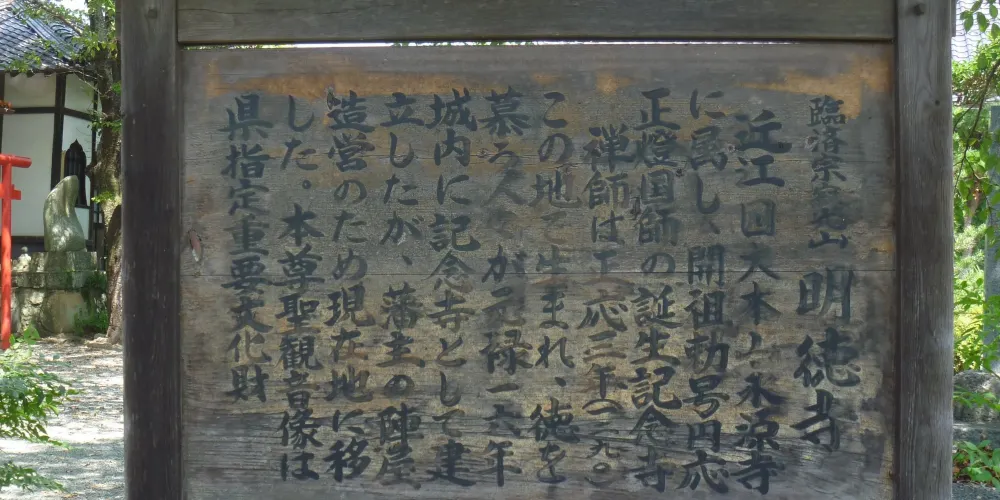 臨済宗宝台山 明徳寺
近江国大本山永源寺
に属し、開祖勅号円応
正燈国師の誕生記念寺
禅師は正応三年(一二九〇)
この地で生まれ、徳を
慕う人々が元禄一六年
城内に記念寺として建
立したが、藩主の陣屋
造営のため現在地に移
した。本尊聖観音像は
県指定重要文化財